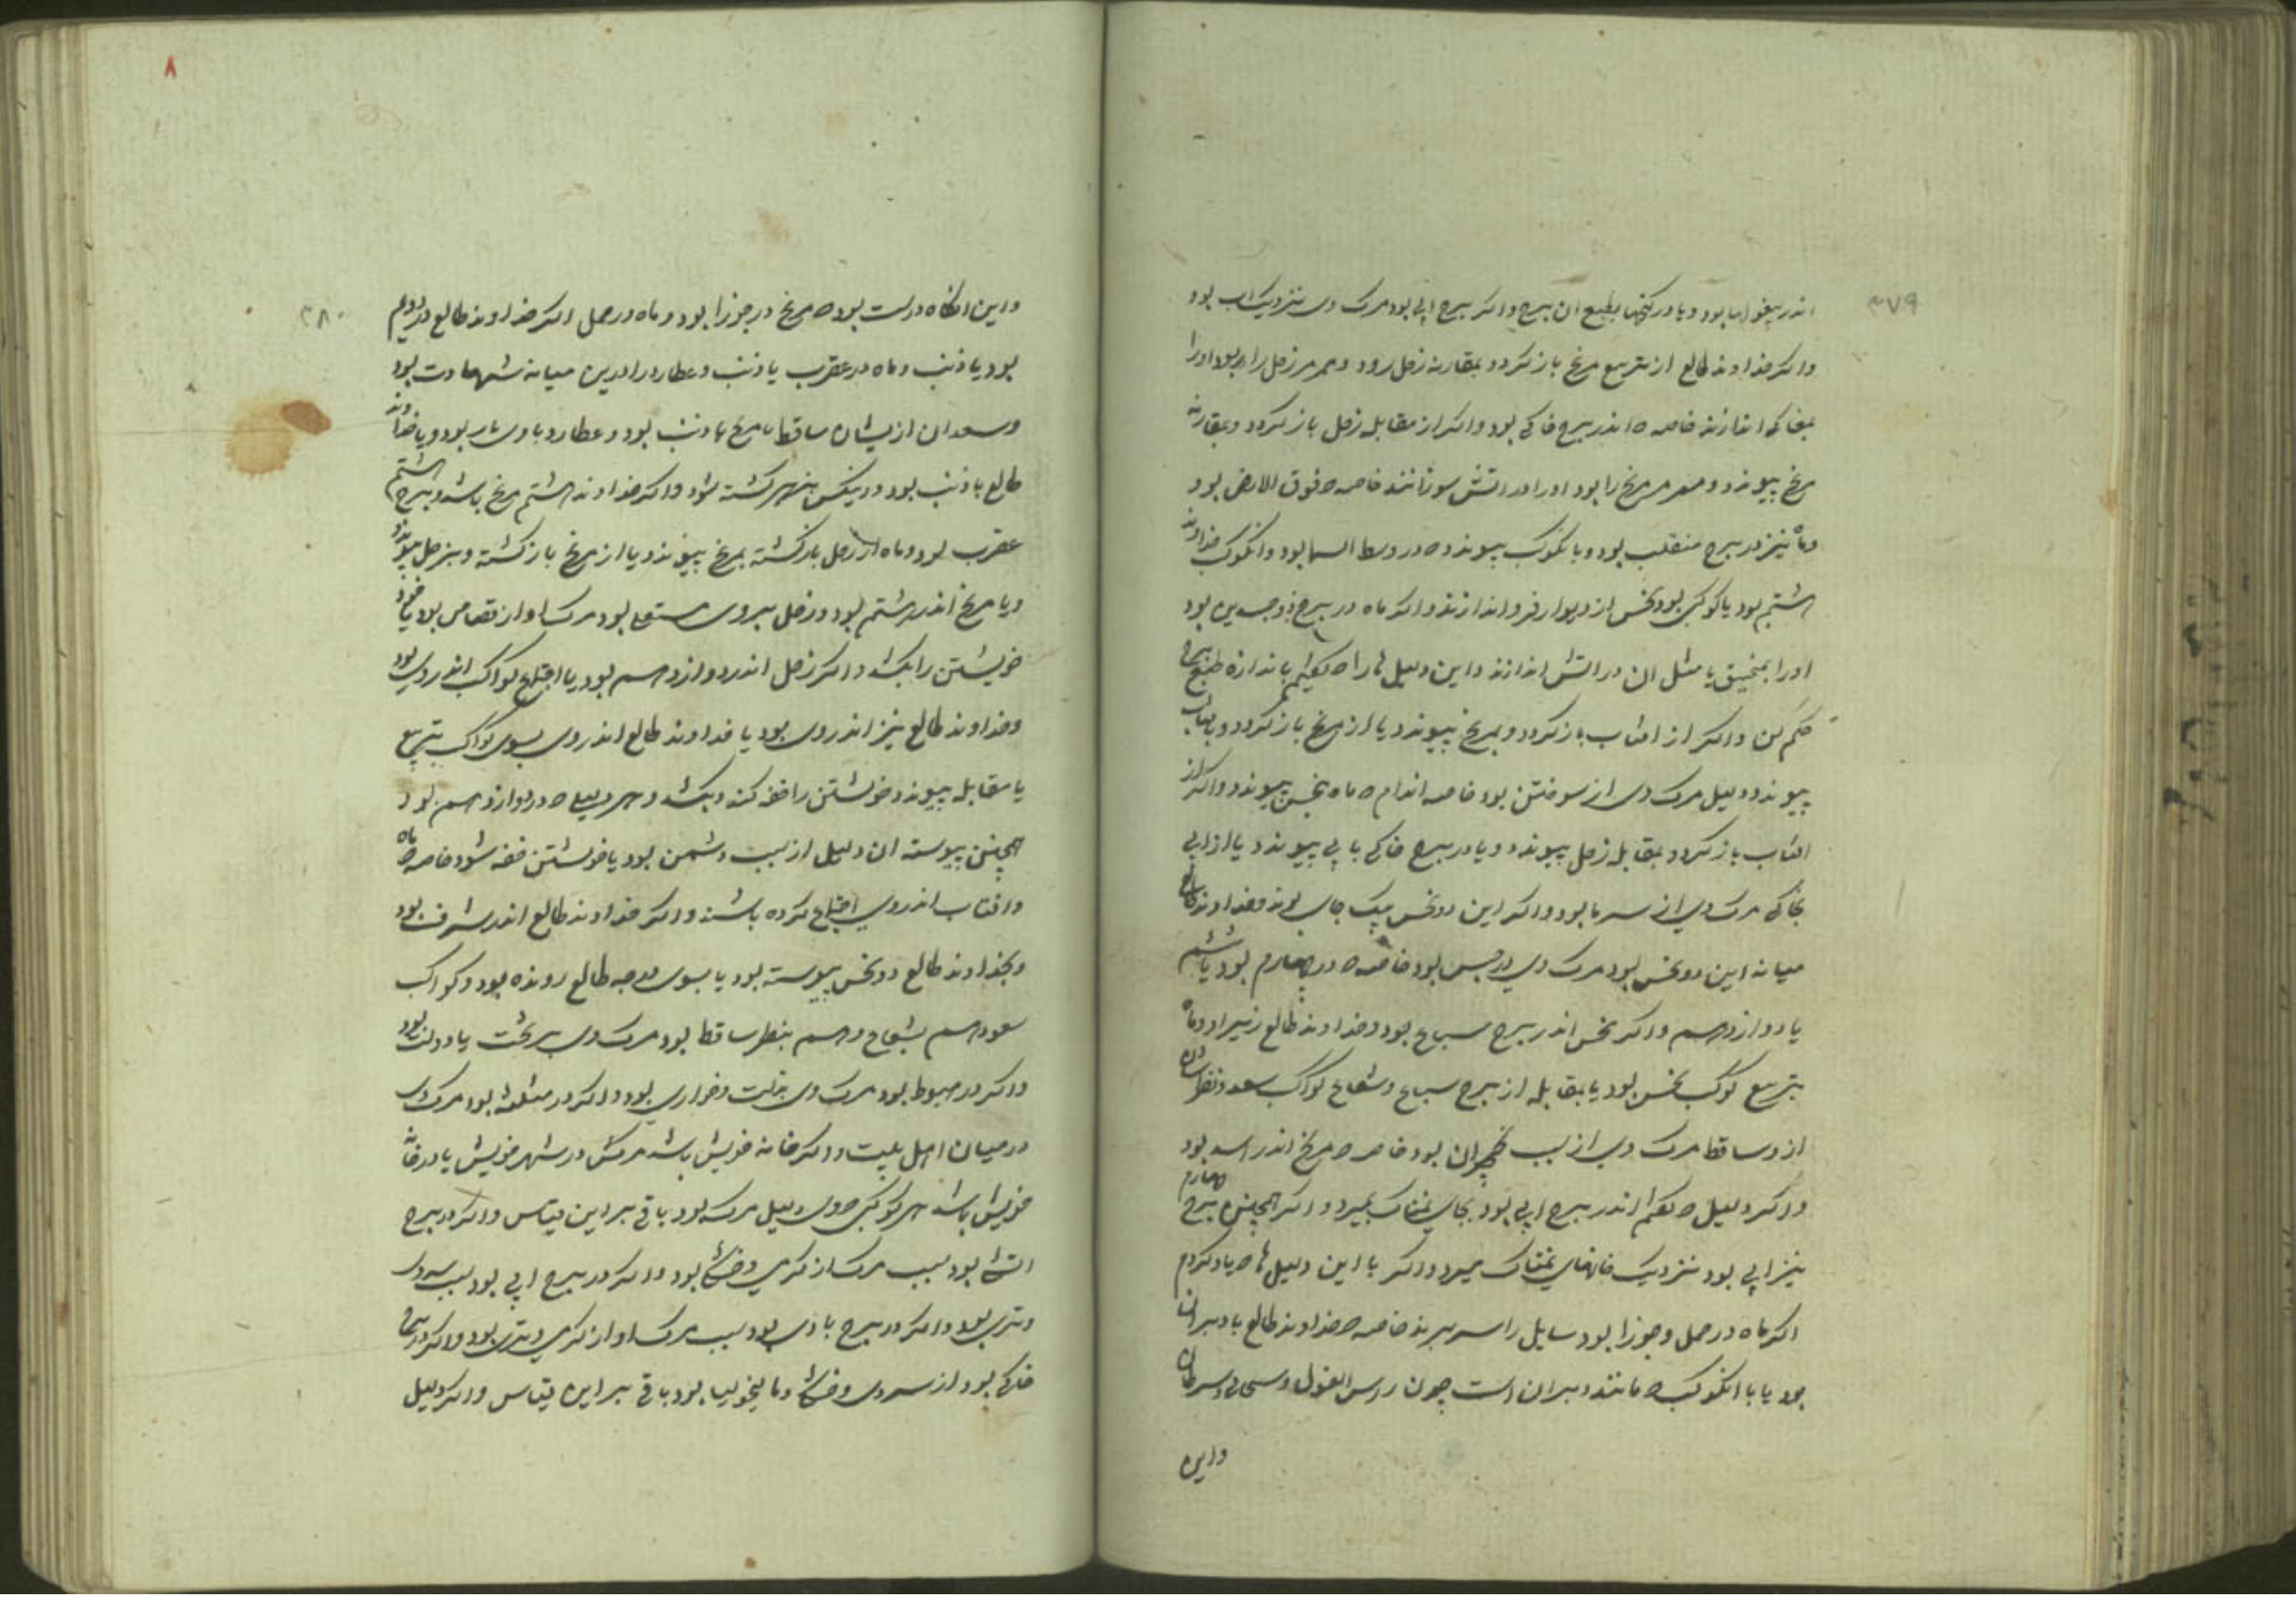 ۳۷۹
اندر بود و یا در کنجها بطبع ان برج و اکر برج ابی بود مرک وی نزدیک اب بود
واکر خداوند طالع از تربیع مریخ باز کردد و بمقارنه زحل رود و مر زحل را بود او را
بمغاکی اندازند خاصه که اندر برج خاکی بود واکر از مقابله زحل باز کردد و بمقارنه
مریخ پیوندد و مریخ را بود او را در اتش سوزانند خاصه که فوق الارض بود
وماه نیز در برج منقلب بود و بانکوکب پیوندد که در وسط السما بود وانکوکب خداوند
هشتم بود یا کوکبی بود نحس از دیوار فرو اندازند واکر ماه در برج ذوجسدین بود
او را بمنجنیق یا مثل ان در اتش اندازند واین دلیل ها را که بکفتم باندازه طبع برج
حکم کن واکر از افتاب باز کردد و بمریخ پیوندد یا از مریخ باز کردد و بافتاب
پیوندد دلیل مرک وی از سوختن بود خاصه اندام که ماه بنحس پیوندد واکر از
افتاب باز کردد بمقابله زحل پیوندد و یا در برج خاکی بابی پیوندد یا از ابی
بخاکی مرک وی از سرما بود واکر این دو نحس بیک جای بوند و خداوند طالع
میانه این دو نحس بود مرک وی در حبس بود خاصه که در چهارم بود یا ششم
یا دوازدهم واکر نحس اندر برج سباع بود و خداوند طالع زیر او و ماه
بتربیع کوکب نحس بود یا بمقابله از برج سباع و شعاع کواکب سعد و نظرشان
ازو ساقط مرک وی از سبب بود خاصه که مریخ اندر اسد بود
واکر دلیل که بکفتم اندر برج ابی بود بجای نمناک بمیرد واکر همچنین برج چهارم
نیز ابی بود نزدیک خانهای نمناک میرد واکر با این دلیل ها که یاد کردم
اکر ماه در حمل و جوزا بود سایل را سر برند خاصه که خداوند طالع با دبران
بود یا با انکوکب که مانند دبران است چون راس الغول و
واین
۸
۳۸۰
واین انکاه درست بود که مریخ در جوزا بود و ماه در حمل اکر خداوند طالع در دویم
بود یا ذنب و ماه در عقرب یا ذنب و عطارد میانه شهادت بود
وسعدان ازیشان ساقط یا مریخ با ذنب بود و عطارد با وی بود و یا خداوند
طالع با ذنب بود ورنیکس بزهر کشته شود واکر خداوند هشتم مریخ باشد و برج هشتم
عقرب بود و ماه از زحل باز کشته بمریخ پیوندد یا از مریخ باز کشته و بزحل پیوندد
ویا مریخ اندر هشتم بود و زحل بروی مستعلی بود مرک او از قصاص بود یا خود
خویشتن را بکشد واکر زحل اندر دوازدهم بود یا اجتماع کواکب اندر وی بود
وخداوند طالع نیز اندر وی بود یا خداوند طالع اندر وی بسوی کواکب بتربیع
یا مقابله پیوندد خویشتن را خفه کند و بکشد و هر دلیلی که در دوازدهم بود
همچنین پیوسته ان دلیل از سبب دشمن بود یا خویشتن خفه شود خاصه که ماه
وافتاب اندر وی اجتماع کرده باشند واکر خداوند طالع اندر شرف بود
وبخداوند طالع دو نحس پیوسته بود یا بسوی درجه طالع رونده بود وکواکب
سعود هم بشعاع و هم بنظر ساقط بود مرک وی بر تخت یا دولت بود
واکر در هبوط بود مرک وی بذلت وخواری بود واکر در مثلثه بود مرک وی
در میان اهل بیت واکر خانه خویش باشد مرکش در شهر خویش یا در خانه
خویش باشد هر کوکبی که وی دلیل مرک بود باقی برین قیاس واکر در برج
اتشی بود سبب مرک از کرمی و خشکی بود واکر در برج ابی بود سبب سردی
وتری بود واکر در برج بادی بود سبب مرک او از کرمی و تری بود واکر در برج
خاکی بود از سردی و خشکی و مالیخولیا بود باقی برین قیاس واکر دلیل